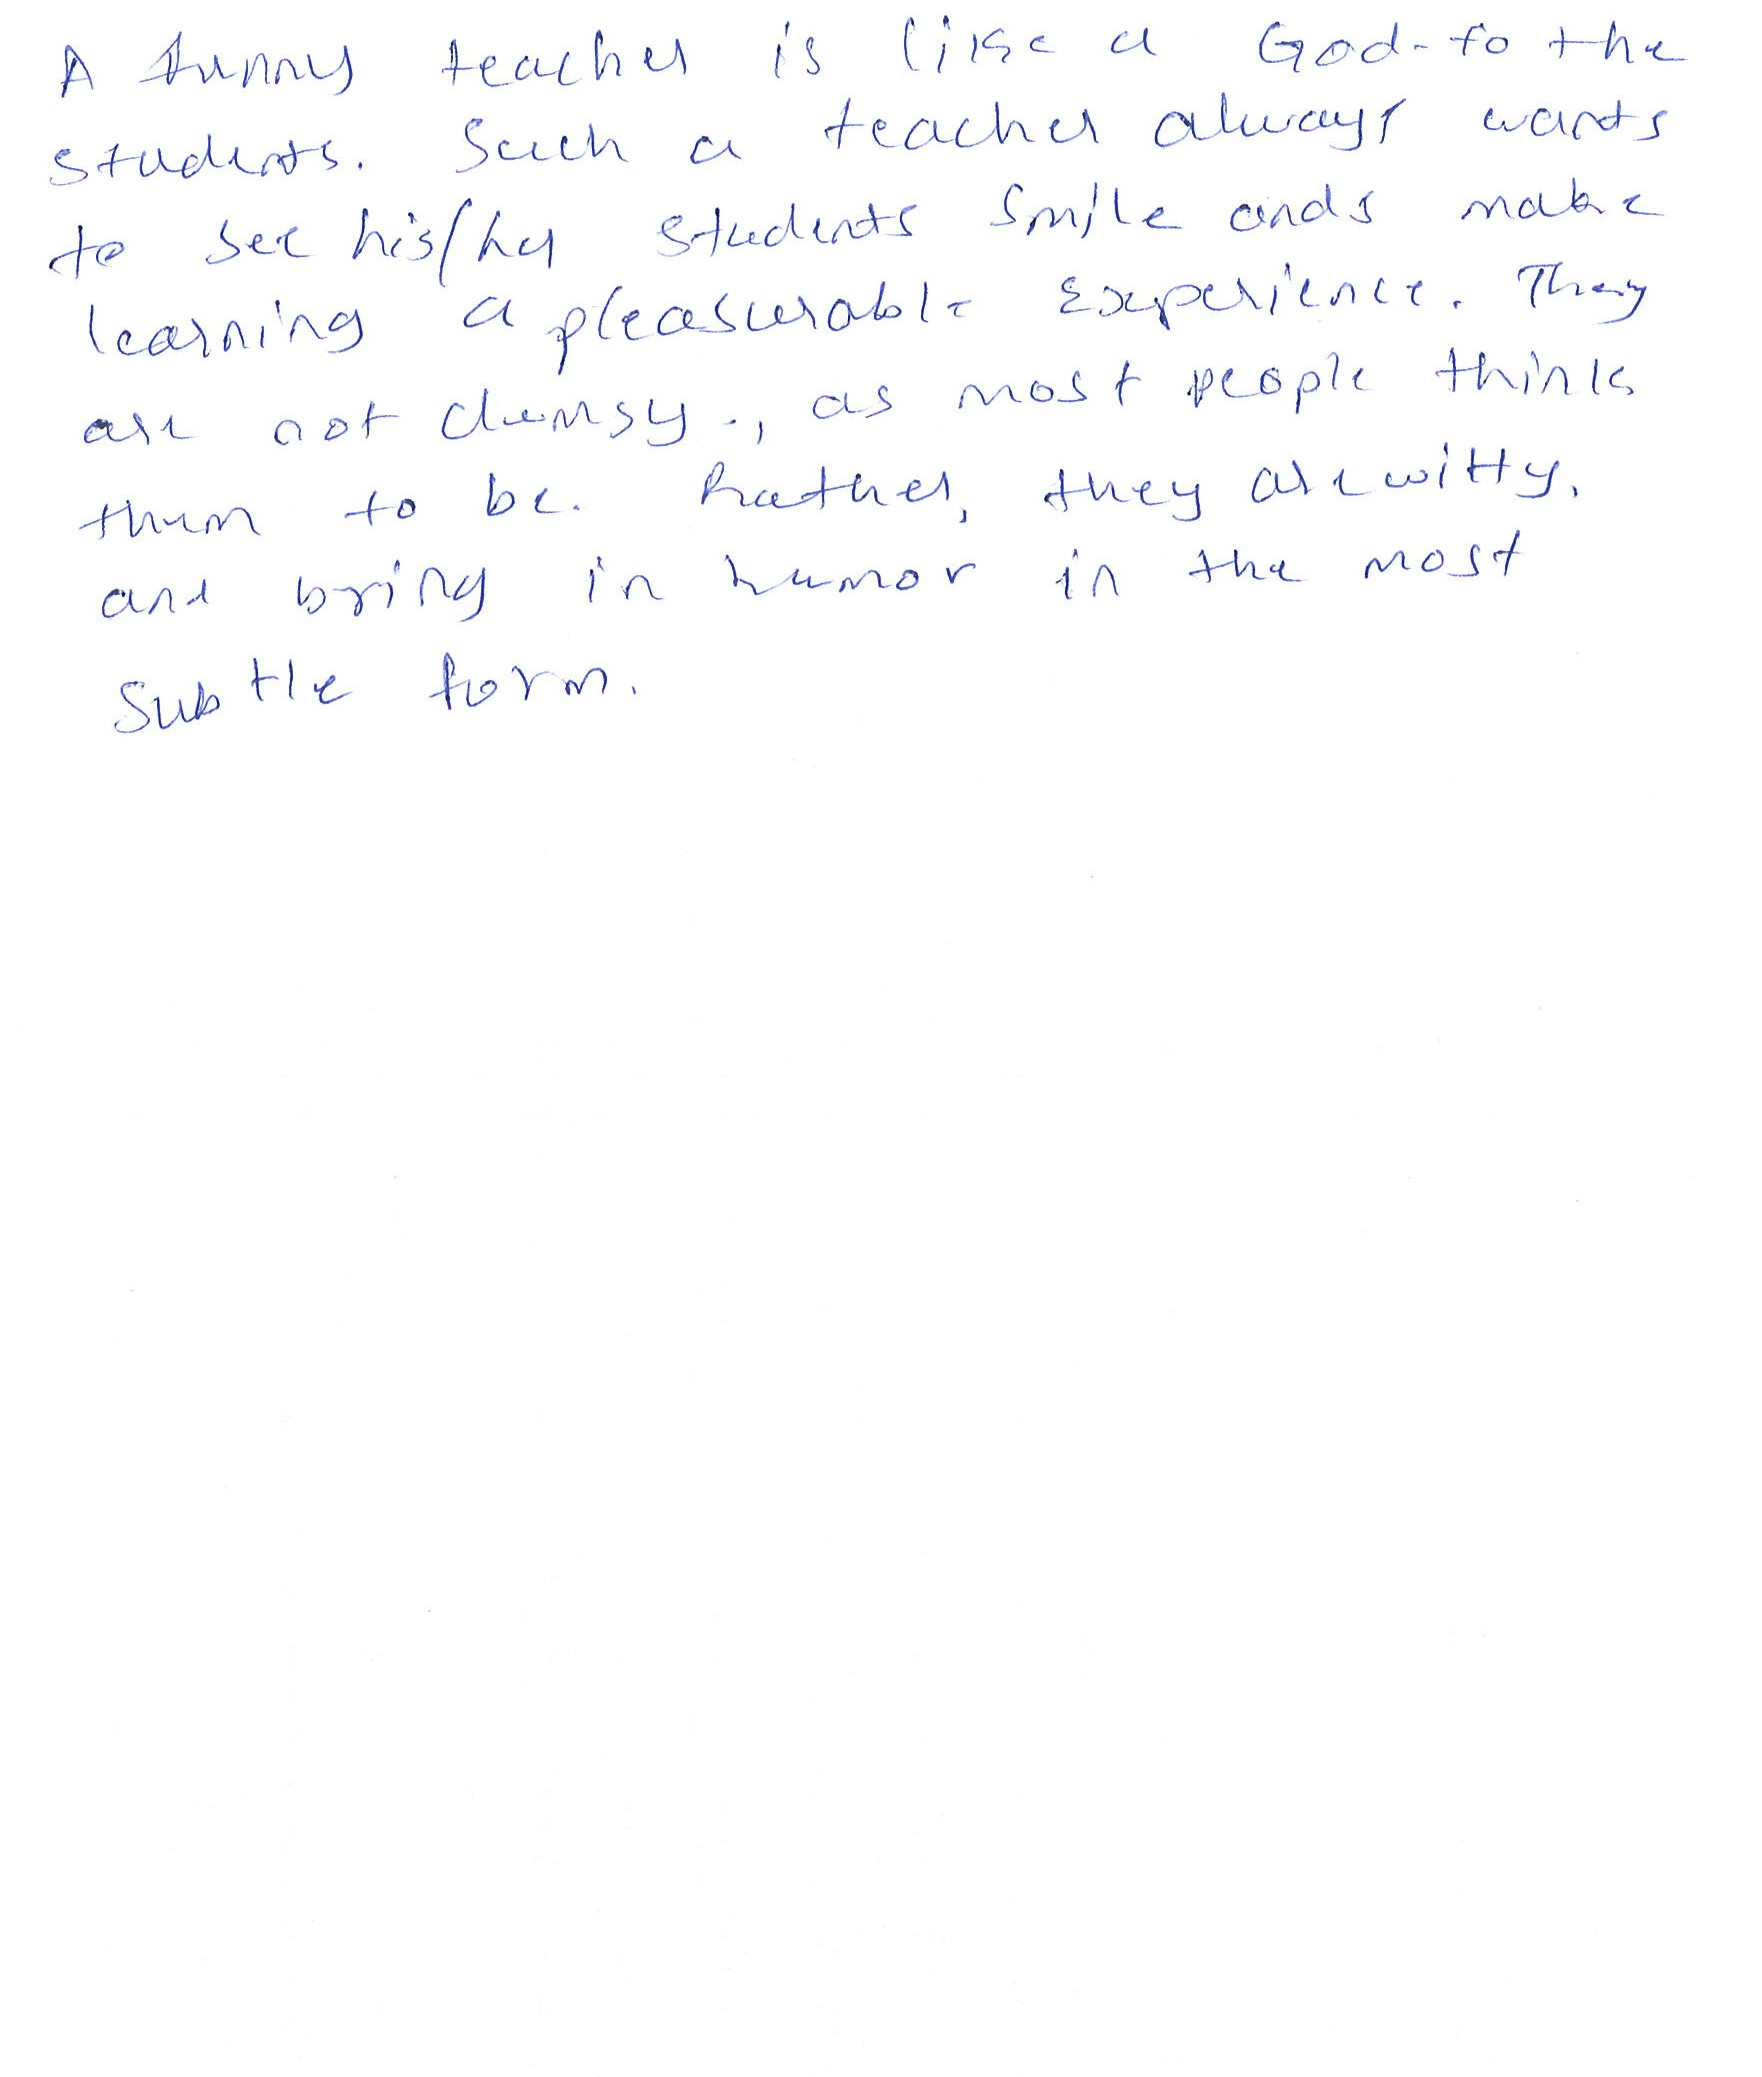 A funny teacher is like a God-to the
students. Such a teacher always wants
to see his/her students smile ands make
learning a pleasurable experience. They
are not clumsy., as most people thinks
them to be. Rather, they are witty,
and bring in humor in the most
subtle form.